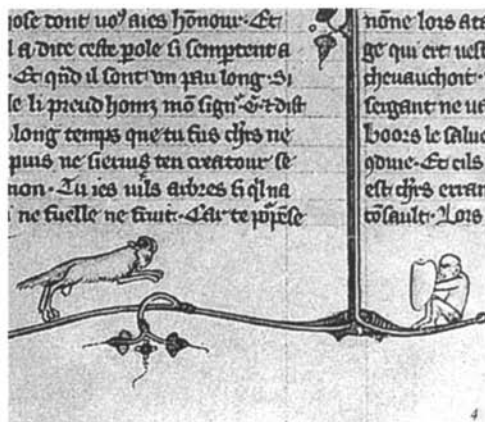 ose dont vo⁹ aies hōnour · Et
l a dite ceste pole si semptent a
· Et q̄nd il sont vn pau long · Si
le li preud homz mō sign̄
long temps que tu fus chr̄s ne
puis ne sieruis ten creatour se
non · Tu ies vils arbres si q̄l na
ne fuelle ne fruit · Car te
nōne lors a
ge qui ert vest
cheuauchoit ·
sergant ne va
boors le salue
q̄diue · Et cils
est chr̄s erran
cōsault · Lors
4